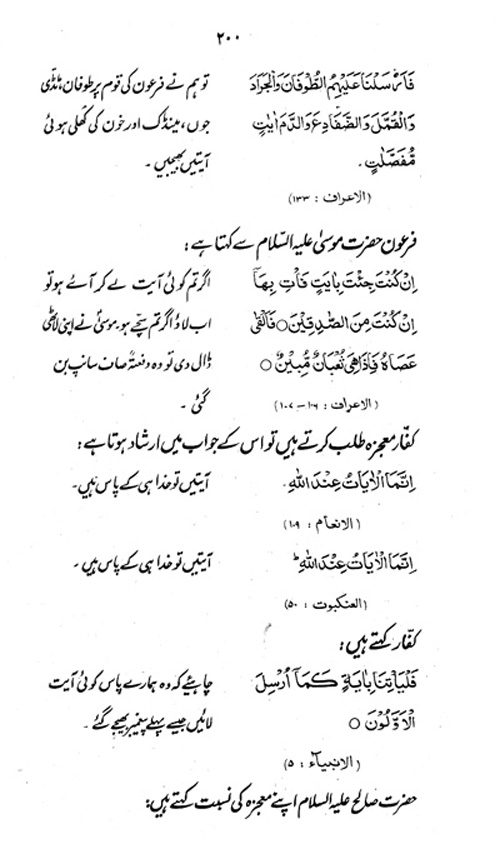 ۲۰۰
فَاَرْسَلْنَا عَلَيْهِمُ الطُّوْفَانَ وَالْجَرَادَ
وَالْقُمَّلَ وَالضَّفَادِعَ وَالدَّمَ اٰيٰتٍ
مُّفَصَّلٰتٍ۔
(الاعراف : ۱۳۳)
تو ہم نے فرعون کی قوم پر طوفان، ٹڈی
جوں، مینڈک اور خون کی کھلی ہوئی
آیتیں بھیجیں۔
فرعون حضرت موسیٰ علیہ السّلام سے کہتا ہے:
اِنْ كُنْتَ جِئْتَ بِاٰيَةٍ فَاْتِ بِهَآ
اِنْ كُنْتَ مِنَ الصّٰدِقِيْنَ○ فَاَلْقٰى
عَصَاهُ فَاِذَا هِيَ ثُعْبَانٌ مُّبِيْنٌ ○
(الاعراف : ۱۰۶ – ۱۰۷)
اگر تم کوئی آیت لے کر آئے ہو تو
اب لاؤ اگر تم سچے ہو۔ موسیٰؑ نے اپنی لاٹھی
ڈال دی تو وہ دفعتہً صاف سانپ بن
گئی۔
کفّار معجزہ طلب کرتے ہیں تو اس کے جواب میں ارشاد ہوتا ہے:
اِنَّمَا الْاٰيَاتُ عِنْدَ اللّٰهِ۔
(الانعام : ۱۰۹)
آیتیں تو خدا ہی کے پاس ہیں۔
اِنَّمَا الْاٰيَاتُ عِنْدَ اللّٰهِ ؕ
(العنکبوت : ۵۰)
آیتیں تو خدا ہی کے پاس ہیں۔
کفّار کہتے ہیں:
فَلْيَاْتِنَا بِاٰيَةٍ كَمَآ اُرْسِلَ
الْاَوَّلُوْنَ ○
(الانبیاء : ۵)
چاہئے کہ وہ ہمارے پاس کوئی آیت
لائیں جیسے پہلے پیغمبر بھیجے گئے۔
حضرت صالح علیہ السلام اپنے معجزہ کی نسبت کہتے ہیں: